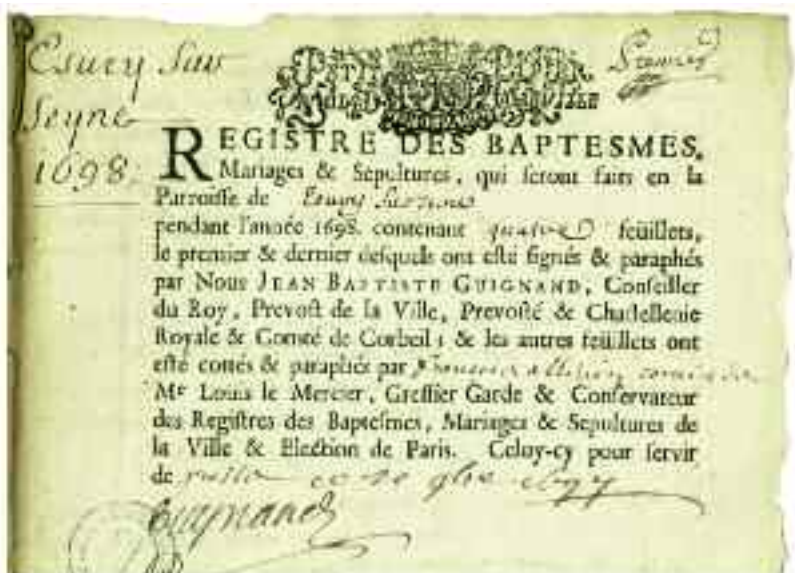 Esury sur
Seyne
1698.
Premier
REGISTRE DES BAPTESMES,
Mariages & Sepultures, qui seront faits en la
Parroisse de Esury sur Seine
pendant l'année 1698. contenant quatre feüillets,
le premier & dernier desquels ont esté signés & paraphés
par Nous JEAN BAPTISTE GUIGNAND, Conseiller
du Roy, Prevost de la Ville, Prevosté & Chastellenie
Royale & Comté de Corbeil ; & les autres feüillets ont
esté cottés & paraphés par commis de
Mr Louis le Mercier, Greffier Garde & Conservateur
des Registres des Baptesmes, Mariages & Sepultures de
la Ville & Election de Paris. Celuy-cy pour servir
de ce
Guignand